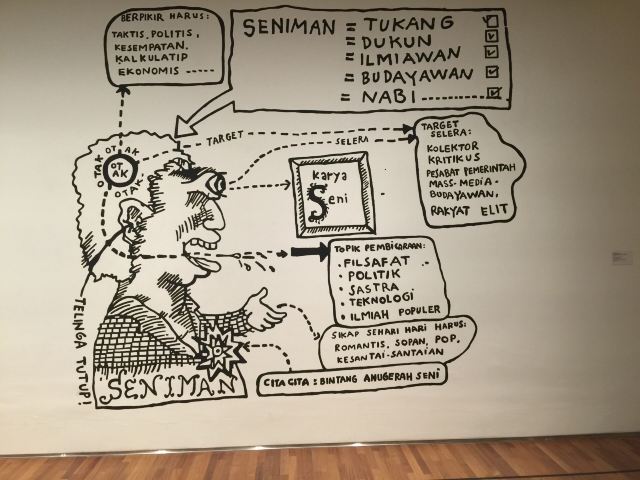 BERPIKIR HARUS:
TAKTIS, POLITIS,
KESEMPATAN.
KALKULATIP
EKONOMIS -----
SENIMAN = TUKANG
= DUKUN
= ILMIAWAN
= BUDAYAWAN
= NABI
OTAK OTAK OTAK
OT
AK
TARGET
SELERA
TARGET
SELERA:
KOLEKTOR
KRITIKUS
PEJABAT PEMERINTAH
MASS-MEDIA-
BUDAYAWAN,
RAKYAT ELIT
Karya
Seni
TOPIK PEMBICARAAN:
• FILSAFAT
• POLITIK
• SASTRA
• TEKNOLOGI
• ILMIAH POPULER
SIKAP SEHARI HARI HARUS:
ROMANTIS, SOPAN, POP,
KESANTAI-SANTAIAN
CITA CITA : BINTANG ANUGERAH SENI
TELINGA TUTUP!
SENIMAN